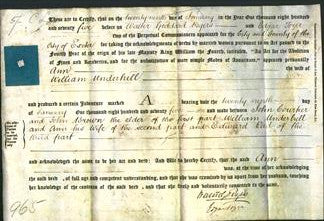 These are to Certify, that on the twenty ninth day of January in the Year One thousand eight hundred
and seventy five before us
two of the Perpetual Commissioners appointed for the City and County of the
City of Exeter for taking the acknowledgments of deeds by married women pursuant to an Act passed in the
Fourth Year of the reign of his late Majesty King William the Fourth, intituled, "An Act for the Abolition
of Fines and Recoveries, and for the substitution of more simple Modes of Assurance," appeared personally
Ann the wife of
William Underhill
and produced a certain Indenture marked A bearing date the twenty eighth day
of January One thousand eight hundred and seventy five and made between John
and John the elder of the first part William Underhill
and Ann his wife of the second part and Edward of the
third part
and acknowledged the same to be her act and deed: And We do hereby Certify, that the said Ann
was, at the time of her acknowledging
the said deed, of full age and competent understanding, and that she was examined by us apart from her husband, touching
her knowledge of the contents of the said deed, and that she freely and voluntarily consented to the same.
965